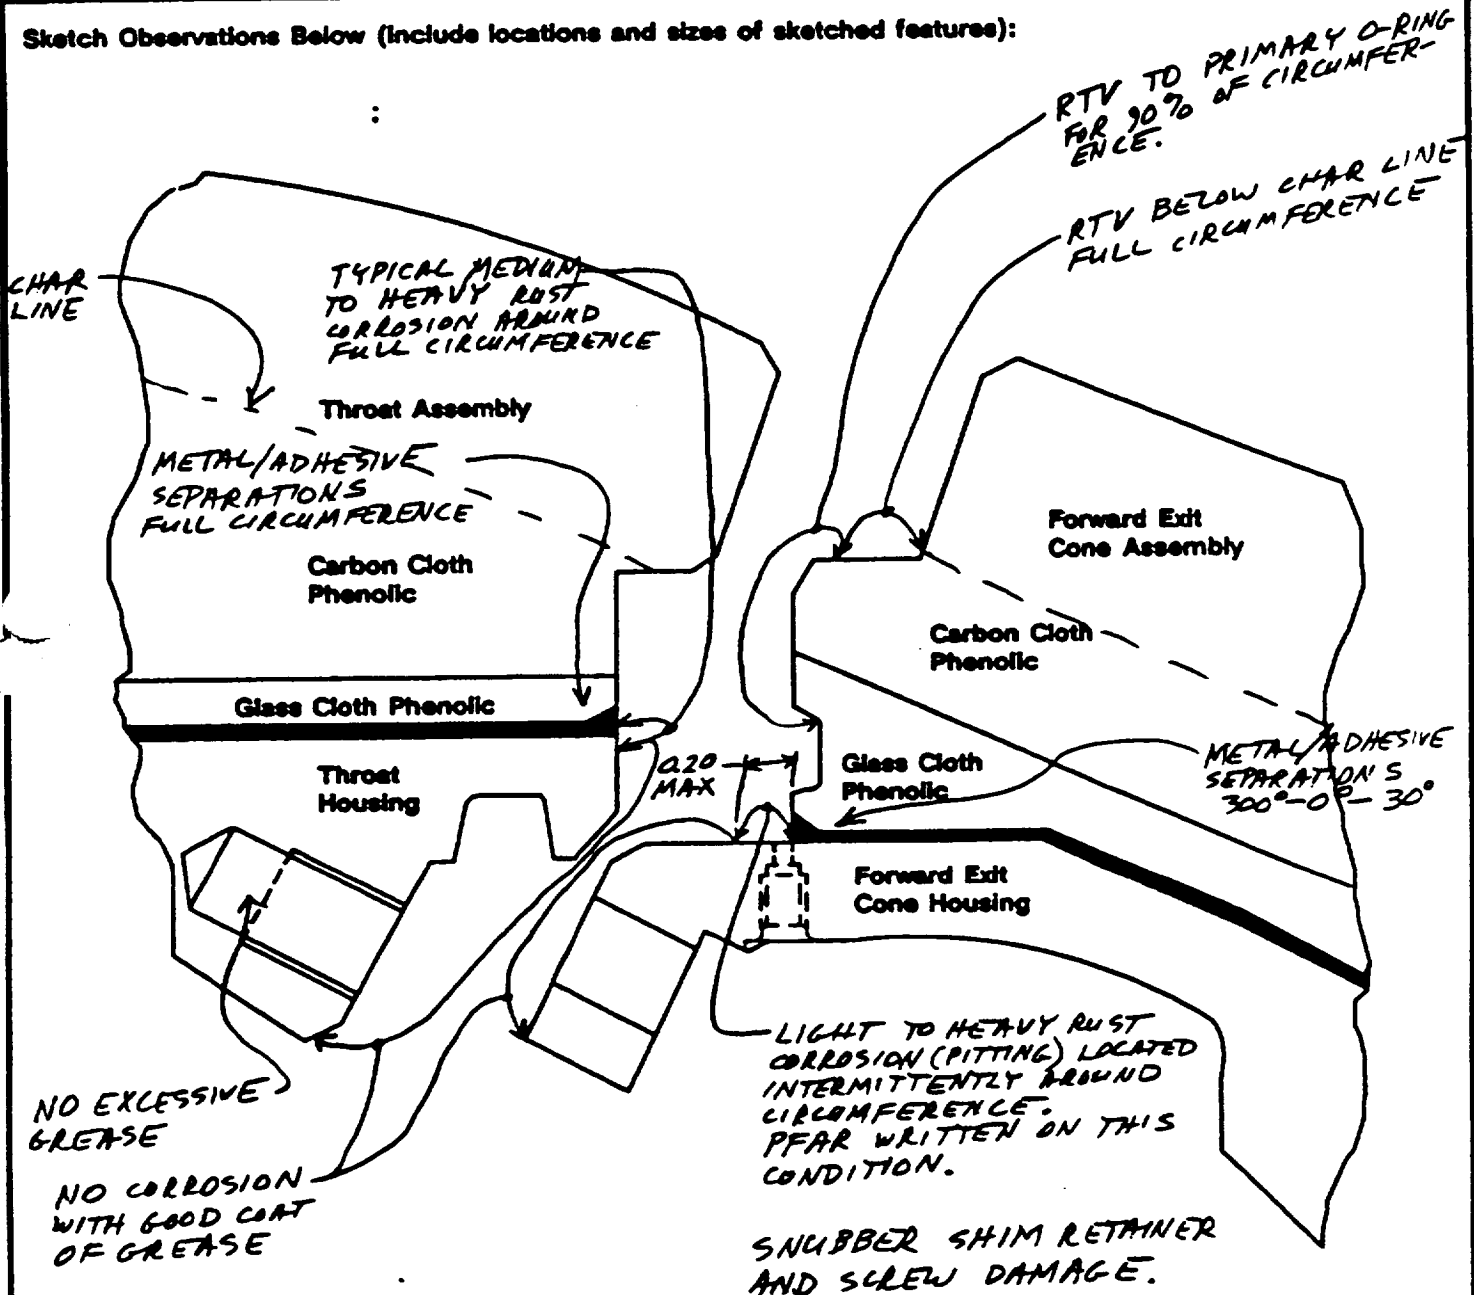 Sketch Observations Below (include locations and sizes of sketched features):
RTV TO PRIMARY O-RING
FOR 90% OF CIRCUMFER-
ENCE.
RTV BELOW CHAR LINE
FULL CIRCUMFERENCE
CHAR
LINE
TYPICAL MEDIUM
TO HEAVY RUST
CORROSION AROUND
FULL CIRCUMFERENCE
Throat Assembly
METAL/ADHESIVE
SEPARATIONS
FULL CIRCUMFERENCE
Carbon Cloth
Phenolic
Forward Exit
Cone Assembly
Carbon Cloth
Phenolic
Glass Cloth Phenolic
Throat
Housing
0.20
MAX
Glass Cloth
Phenolic
METAL/ADHESIVE
SEPARATIONS
300°-0°-30°
Forward Exit
Cone Housing
NO EXCESSIVE
GREASE
NO CORROSION
WITH GOOD COAT
OF GREASE
LIGHT TO HEAVY RUST
CORROSION (PITTING) LOCATED
INTERMITTENTLY AROUND
CIRCUMFERENCE.
PFAR WRITTEN ON THIS
CONDITION.
SNUBBER SHIM RETAINER
AND SCREW DAMAGE.